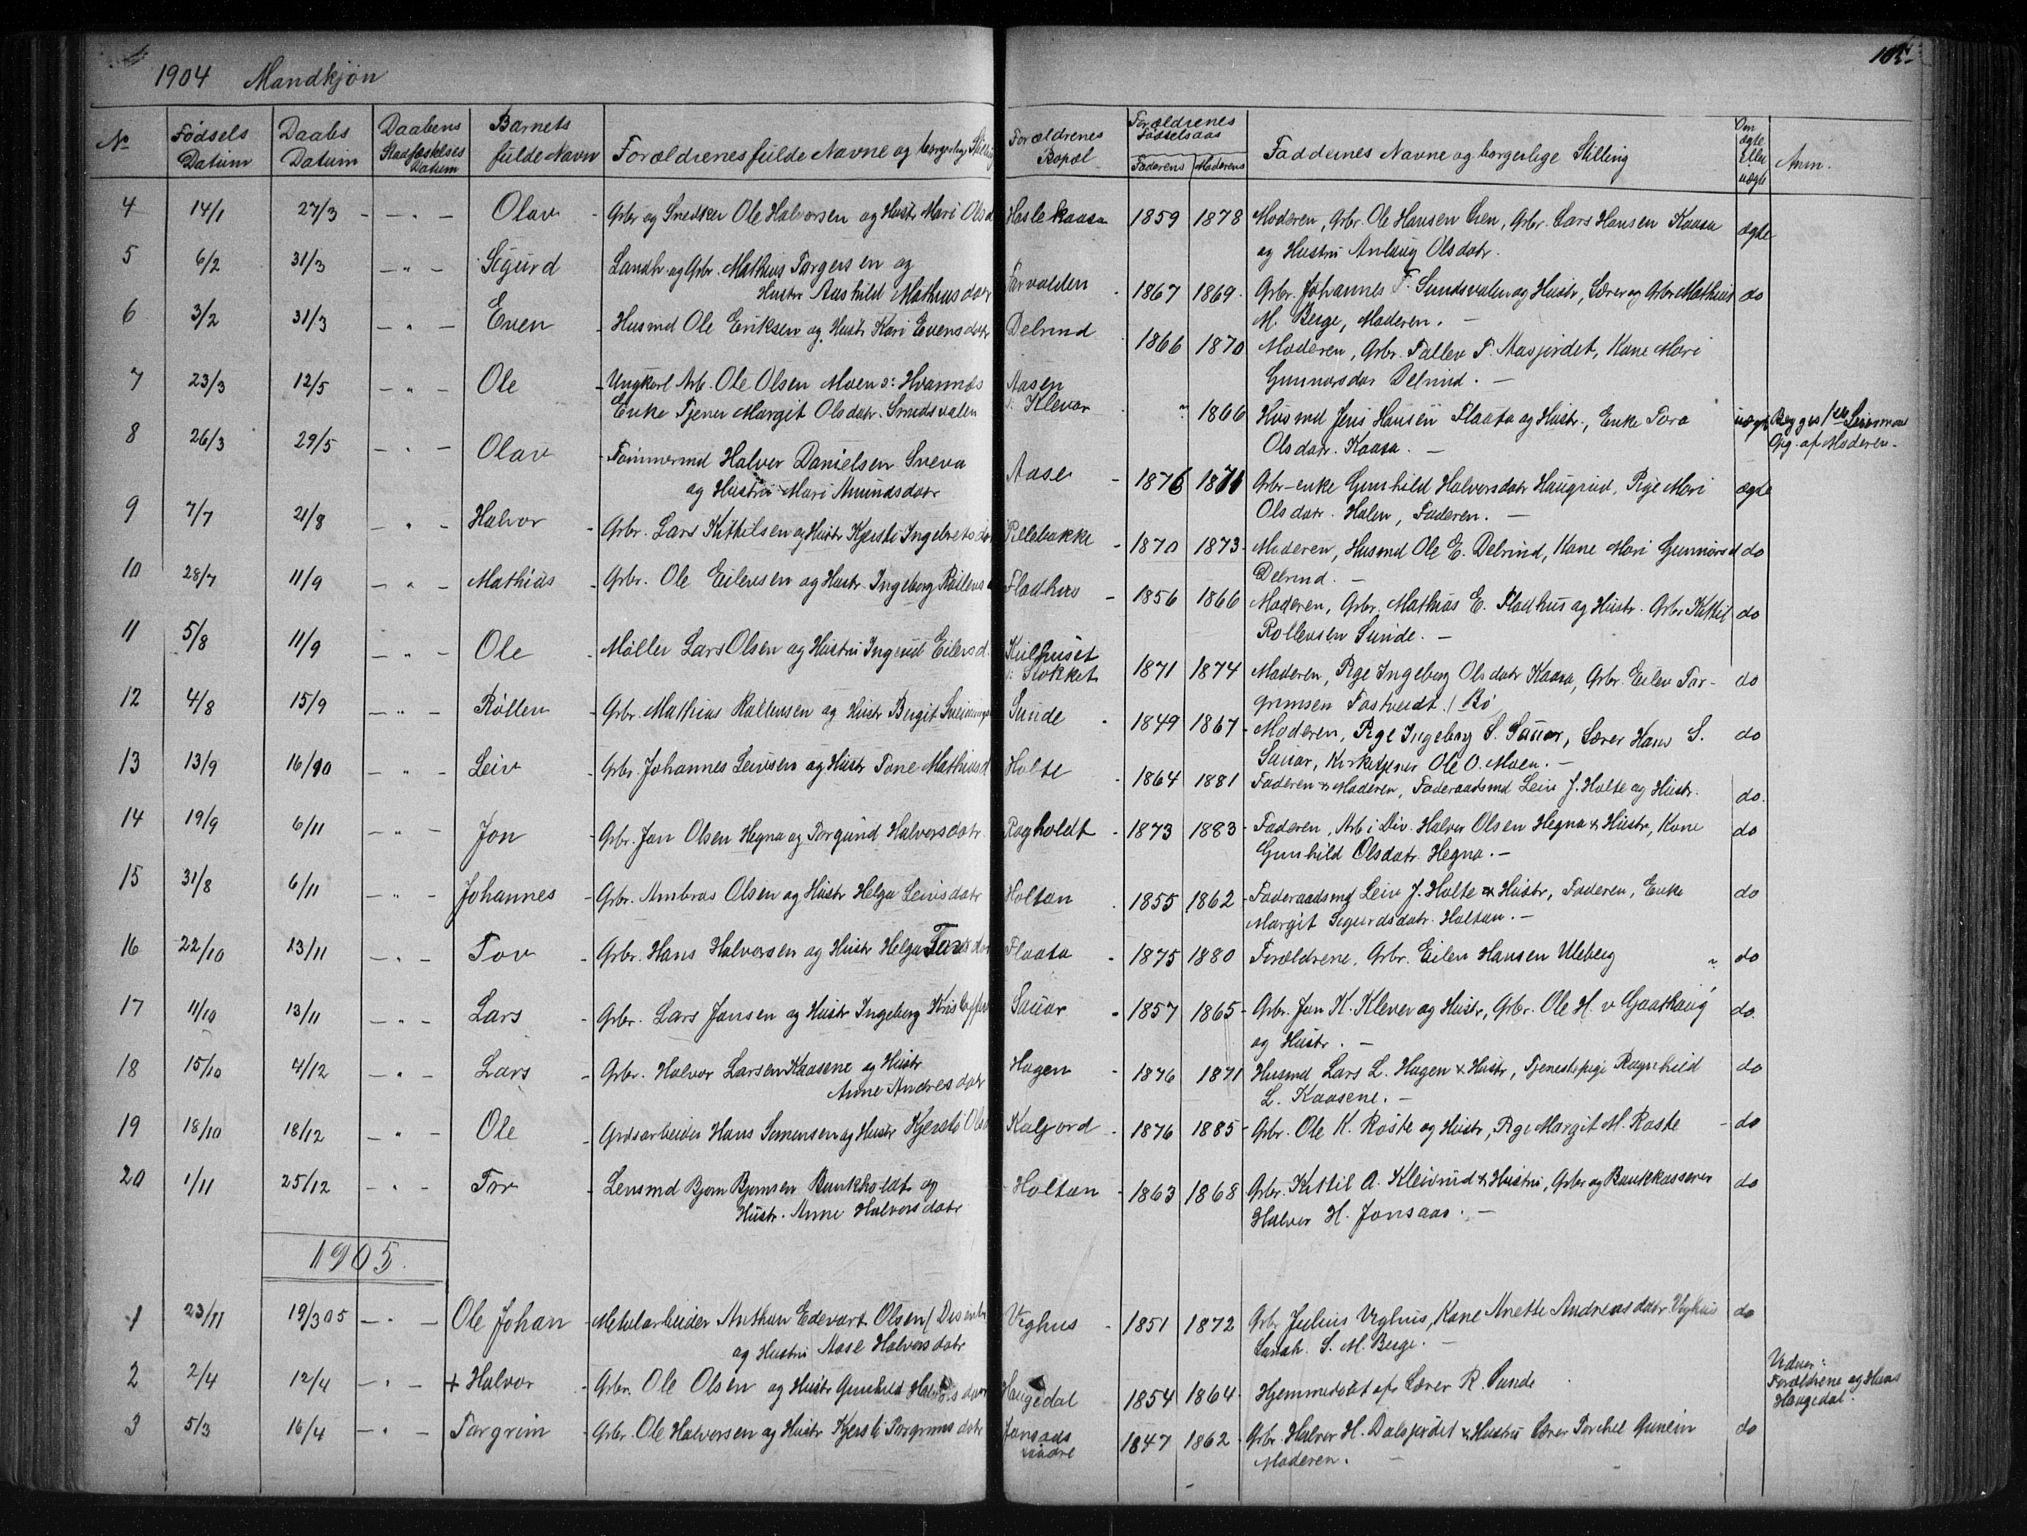 1904 Mandkjøn
105
No Fødsels Datum Daabs Datum Daabens Stadfæstelses Datum Barnets fulde Navn Forældrenes fulde Navne og borgerlig Stilling Forældrenes Bopæl Forældrenes Fødselsaar Faderens Moderens Faddernes Navne og borgerlige Stilling Om ægte eller uægte Anm.
4 14/1 27/3 - " - Olav - Gbr. og Snedker Ole Halvorsen og Hustr Mari Olsd Haslekaasa 1859 1878 Moderen, Gbr. Ole Hansen Lien, Gbr. Lars Hansen Kaasa ægte
og Hustru Anlaug Olsdatr.
5 6/2 31/3 - " - Sigurd Landh og Gbr. Mathias Targersen og
Hustr Aashild Mathiasdatr 1867 1869 Gbr. Johannes T. Sundsvalen og Hustr, Lærer og Gbr Mathias do
M. Berge, Moderen. -
6 3/2 31/3 - " - Even - Husmd Ole Eriksen og Hustr Kari Evensdatr Delrind 1866 1870 Moderen, Gbr. Tallev T. Aasjordet, Kone Mari
Gunnarsdar Delrind. -
7 23/3 12/5 - " - Ole - Ungkarl Arb. Ole Olsen Moen s: Hvamnes Aasen " 1866 Husmd Jens Hansen Flaata og Hustr., Enke Tora uægte Begges 1ste Leiermaal
Enke Tjener Margit Olsdatr. Sundsvalen s: Klevar Olsdatr. Kaasa. - Opg. af Moderen.
8 26/3 29/5 - " - Olav - Tømmermd Halvor Danielsen Sneva
og Hustru Mari Amundsdatr Aase - 1876 1871 Gbr-enke Gunhild Halvorsdatr Haugrud, Pige Mari ægte
Olsdatr. Halen, Faderen. -
9 7/7 21/8 - " - Halvor - Gbr. Lars Kittilsen og Hustr Kjersti Ingebretsdatr Pillebakke - 1870 1873 Moderen, Husmd Ole E. Delrind, Kone Mari Gunnarsd do
Delrind. -
10 28/7 11/9 - " - Mathias - Gbr. Ole Eilevsen og Hustr. Ingeborg Røllevs Fladhus - 1856 1866 Moderen, Gbr. Mathias E. Fladhus og Hustr. Gbr Kittil do
Rollevsen Sunde. -
11 5/8 11/9 - " - Ole - Møller Lars Olsen og Hustru Ingerid Eilevsd Kulhuset 1871 1874 Moderen, Pige Ingeborg Olsdatr Kaasa, Gbr. Eilev Tar- do
s: Stokket grimsen Tastveidt / Bø
12 4/8 15/9 - " - Røllev - Gbr. Mathias Rollevsen og Hustr Birgit Sveinungs Sunde 1849 1867 Moderen, Pige Ingeborg S. Sauar, Lærer Hans S. do
Sauar, Kirketjener Ole O. Moen. -
13 13/9 16/10 - " - Leiv - Gbr. Johannes Leivsen og Hustr Tone Mathiasd Holte 1864 1881 Faderen & Moderen, Føderaadsmd Leiv J. Holte og Hustr. do.
14 19/9 6/11 - " - Jon - Gbr. Jon Olsen Hegna og Torgund Halvorsdatr. Rogholdt - 1873 1883 Faderen, Arb i Div. Halvor Olsen Hegna & Hustr, Kone do
Gunhild Olsdatr. Hegna. -
15 31/8 6/11 - " - Johannes - Gbr. Ambros Olsen og Hustr Helga Leivsdatr Holtan 1855 1862 Føderaadsmd Leiv J. Holte & Hustr, Faderen, Enke do
Margit Sigurdsdatr. Holtan. -
16 22/10 13/11 - " - Tov - Gbr. Hans Halvorsen og Hustr Helga Tovsdatr Flaata - 1875 1880 Forældrene, Gbr. Eilev Hansen Uleberg do
17 11/10 13/11 - " - Lars - Gbr. Lars Jonsen og Hustr Ingeborg Sauar 1857 1865 Gbr. Jon K. Klever og Hustr, Gbr. Ole H. v Gaathaug do
og Hustr. -
18 15/10 4/12 - " - Lars - Gbr. Halvor Larsen Kaasene og Hustr
Anne Andresdatr Hagen - 1876 1871 Husmd Lars L. Hagen & Hustr, Tjenestepige Ragnhild do
L. Kaasene. -
19 18/10 18/12 - " - Ole - Grdsarbeider Hans Simensen og Hustr Kjersti Ols Kalgjord - 1876 1885 Gbr. Ole K. Røste og Hustr, Pige Margit M. Røste - do
20 1/11 25/12 - " - Tor - Lensmd Bjørn Bjørnsen Bunkholdt og
Hustr. Anne Halvorsdatr - Holtan 1863 1868 Gbr. Kittil A. Kleivrud & Hustru, Gbr og Bankkasserer do
Halvor H. Jonsaas. -
1905.
1 23/11 19/3 05 - " - Ole Johan - Metalarbeider Anthon Edevart Olsen /
og Hustru Aase Halvorsdatr Vighus - 1851 1872 Gbr Julius Vighus, Kone Anette Andreasdatr Vighus do
Landh. S. M. Berge. -
2 2/4 12/4 - " - + Halvor - Gbr. Ole Olsen og Hustr Gunhild Halvorsdatr Haugedal 1854 1864 Hjemmedøbt af Lærer R. Sunde Vidner:
Forældrene og Hans
Haugedal.
3 5/3 16/4 - " - Targrim - Gbr. Ole Halvorsen og Hustr Kjersti Torgrimsdatr Jonsaas 1847 1862 Gbr. Halvor H. Dalsjordet & Hustru Lærer Torchel Gunlein do
søndre Moderen. -